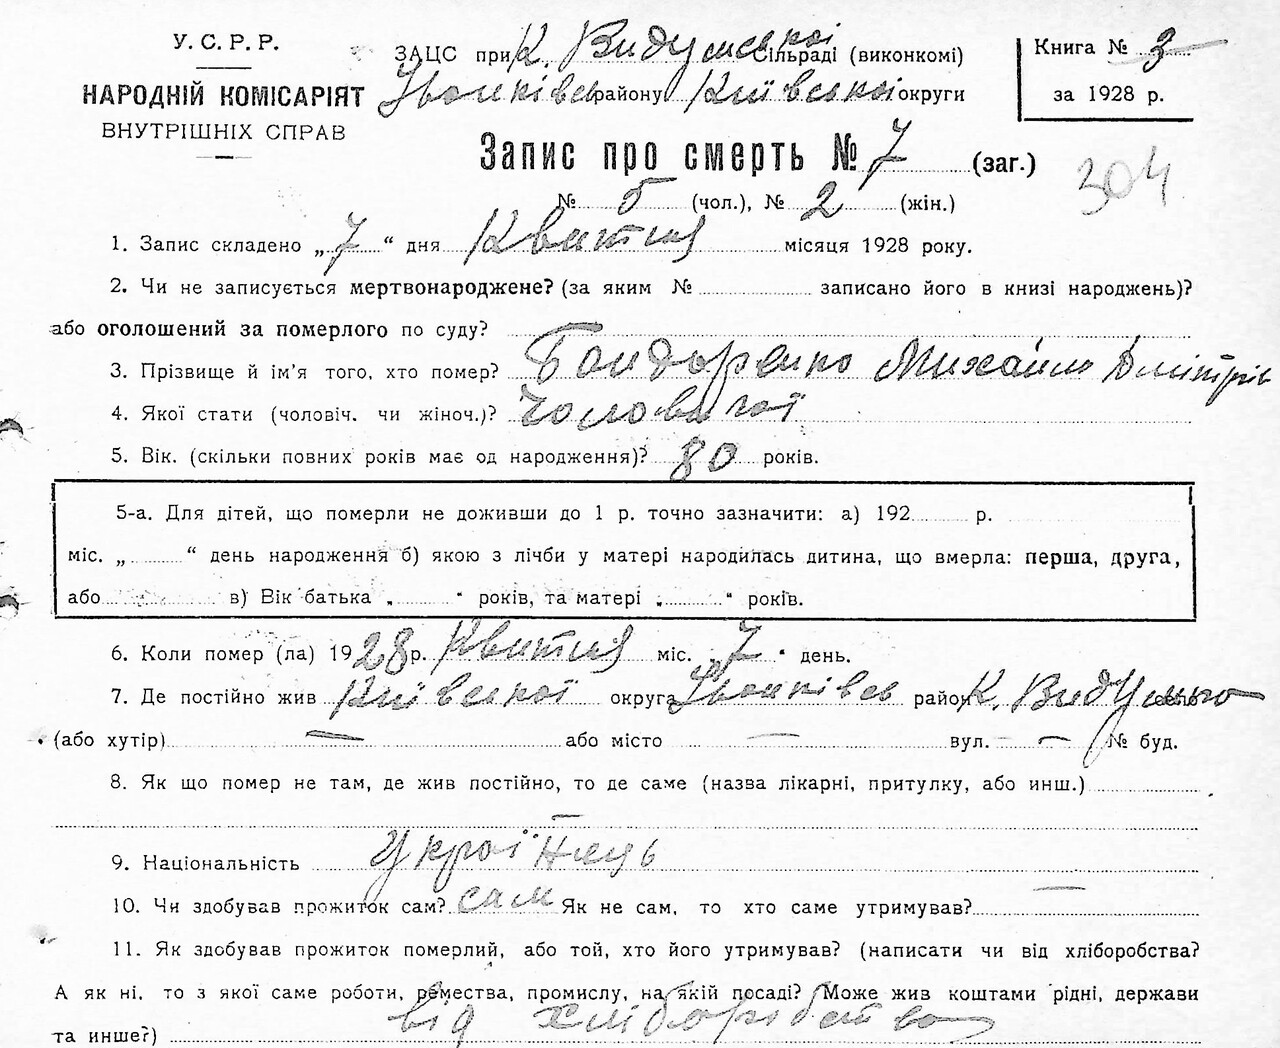 У. С. Р. Р.
НАРОДНІЙ КОМІСАРІЯТ
ВНУТРІШНІХ СПРАВ
ЗАЦС при К. Видумської сільраді (виконкомі)
Іванківсь району Київської округи
Книга № 3
за 1928 р.
Запис про смерть № 7 (заг.)
304
№ 5 (чол.), № 2 (жін.)
1. Запис складено „7“ дня Квитня місяця 1928 року.
2. Чи не записується мертвонароджене? (за яким № записано його в книзі народжень)?
або оголошений за померлого по суду?
3. Прізвище й ім’я того, хто помер? Бондаренко Михайло Дмітрів
4. Якої стати (чоловіч. чи жіноч.)? Чоловічої
5. Вік. (скільки повних років має од народження)? 80 років.
5-а. Для дітей, що померли не доживши до 1 р. точно зазначити: а) 192 р.
міс. „ “ день народження б) якою з лічби у матері народилась дитина, що вмерла: перша, друга,
або в) Вік батька „ “ років, та матері „ “ років.
6. Коли помер (ла) 1928 р. Квитня міс. 7 день.
7. Де постійно жив Київської округа Іванківсь район К. Видумка
(або хутір) — або місто — вул. — № буд.
8. Як що помер не там, де жив постійно, то де саме (назва лікарні, притулку, або инш.)
—
9. Національність Українець
10. Чи здобував прожиток сам? сам Як не сам, то хто саме утримував? —
11. Як здобував прожиток померлий, або той, хто його утримував? (написати чи від хліборобства?
А як ні, то з якої саме роботи, ремества, промислу, на якій посаді? Може жив коштами рідні, держави
та инше?) від хліборобства